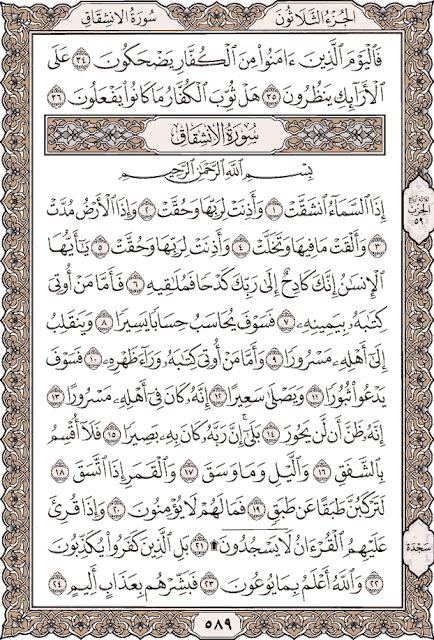 سُورَةُ الِانشِقَاقِ الجُزْءُ الثَّلَاثُونَ
فَٱلْيَوْمَ ٱلَّذِينَ ءَامَنُوا۟ مِنَ ٱلْكُفَّارِ يَضْحَكُونَ ٣٤ عَلَى
ٱلْأَرَآئِكِ يَنظُرُونَ ٣٥ هَلْ ثُوِّبَ ٱلْكُفَّارُ مَا كَانُوا۟ يَفْعَلُونَ ٣٦
سُورَةُ الِانشِقَاقِ
بِسْمِ ٱللَّهِ ٱلرَّحْمَٰنِ ٱلرَّحِيمِ
إِذَا ٱلسَّمَآءُ ٱنشَقَّتْ ١ وَأَذِنَتْ لِرَبِّهَا وَحُقَّتْ ٢ وَإِذَا ٱلْأَرْضُ مُدَّتْ
٣ وَأَلْقَتْ مَا فِيهَا وَتَخَلَّتْ ٤ وَأَذِنَتْ لِرَبِّهَا وَحُقَّتْ ٥ يَٰٓأَيُّهَا
ٱلْإِنسَٰنُ إِنَّكَ كَادِحٌ إِلَىٰ رَبِّكَ كَدْحًا فَمُلَٰقِيهِ ٦ فَأَمَّا مَنْ أُوتِىَ
كِتَٰبَهُۥ بِيَمِينِهِۦ ٧ فَسَوْفَ يُحَاسَبُ حِسَابًا يَسِيرًا ٨ وَيَنقَلِبُ
إِلَىٰٓ أَهْلِهِۦ مَسْرُورًا ٩ وَأَمَّا مَنْ أُوتِىَ كِتَٰبَهُۥ وَرَآءَ ظَهْرِهِۦ ١٠ فَسَوْفَ
يَدْعُوا۟ ثُبُورًا ١١ وَيَصْلَىٰ سَعِيرًا ١٢ إِنَّهُۥ كَانَ فِىٓ أَهْلِهِۦ مَسْرُورًا ١٣
إِنَّهُۥ ظَنَّ أَن لَّن يَحُورَ ١٤ بَلَىٰٓ إِنَّ رَبَّهُۥ كَانَ بِهِۦ بَصِيرًا ١٥ فَلَآ أُقْسِمُ
بِٱلشَّفَقِ ١٦ وَٱلَّيْلِ وَمَا وَسَقَ ١٧ وَٱلْقَمَرِ إِذَا ٱتَّسَقَ ١٨
لَتَرْكَبُنَّ طَبَقًا عَن طَبَقٍ ١٩ فَمَا لَهُمْ لَا يُؤْمِنُونَ ٢٠ وَإِذَا قُرِئَ
عَلَيْهِمُ ٱلْقُرْءَانُ لَا يَسْجُدُونَ ۩ ٢١ بَلِ ٱلَّذِينَ كَفَرُوا۟ يُكَذِّبُونَ
٢٢ وَٱللَّهُ أَعْلَمُ بِمَا يُوعُونَ ٢٣ فَبَشِّرْهُم بِعَذَابٍ أَلِيمٍ ٢٤
ثلاثة أرباع
الحزب
٥٩
سَجْدَة
٥٨٩